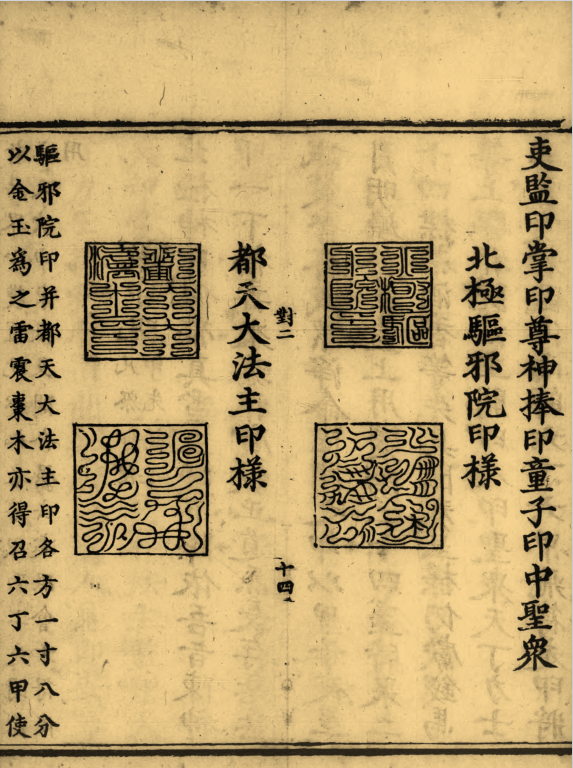 吏監印掌印尊神捧印童子印中聖衆
北極驅邪院印樣
對二
十四
都天大法主印樣
驅邪院印并都天大法主印各方一寸八分
以金玉為之雷震棗木亦得召六丁六甲使